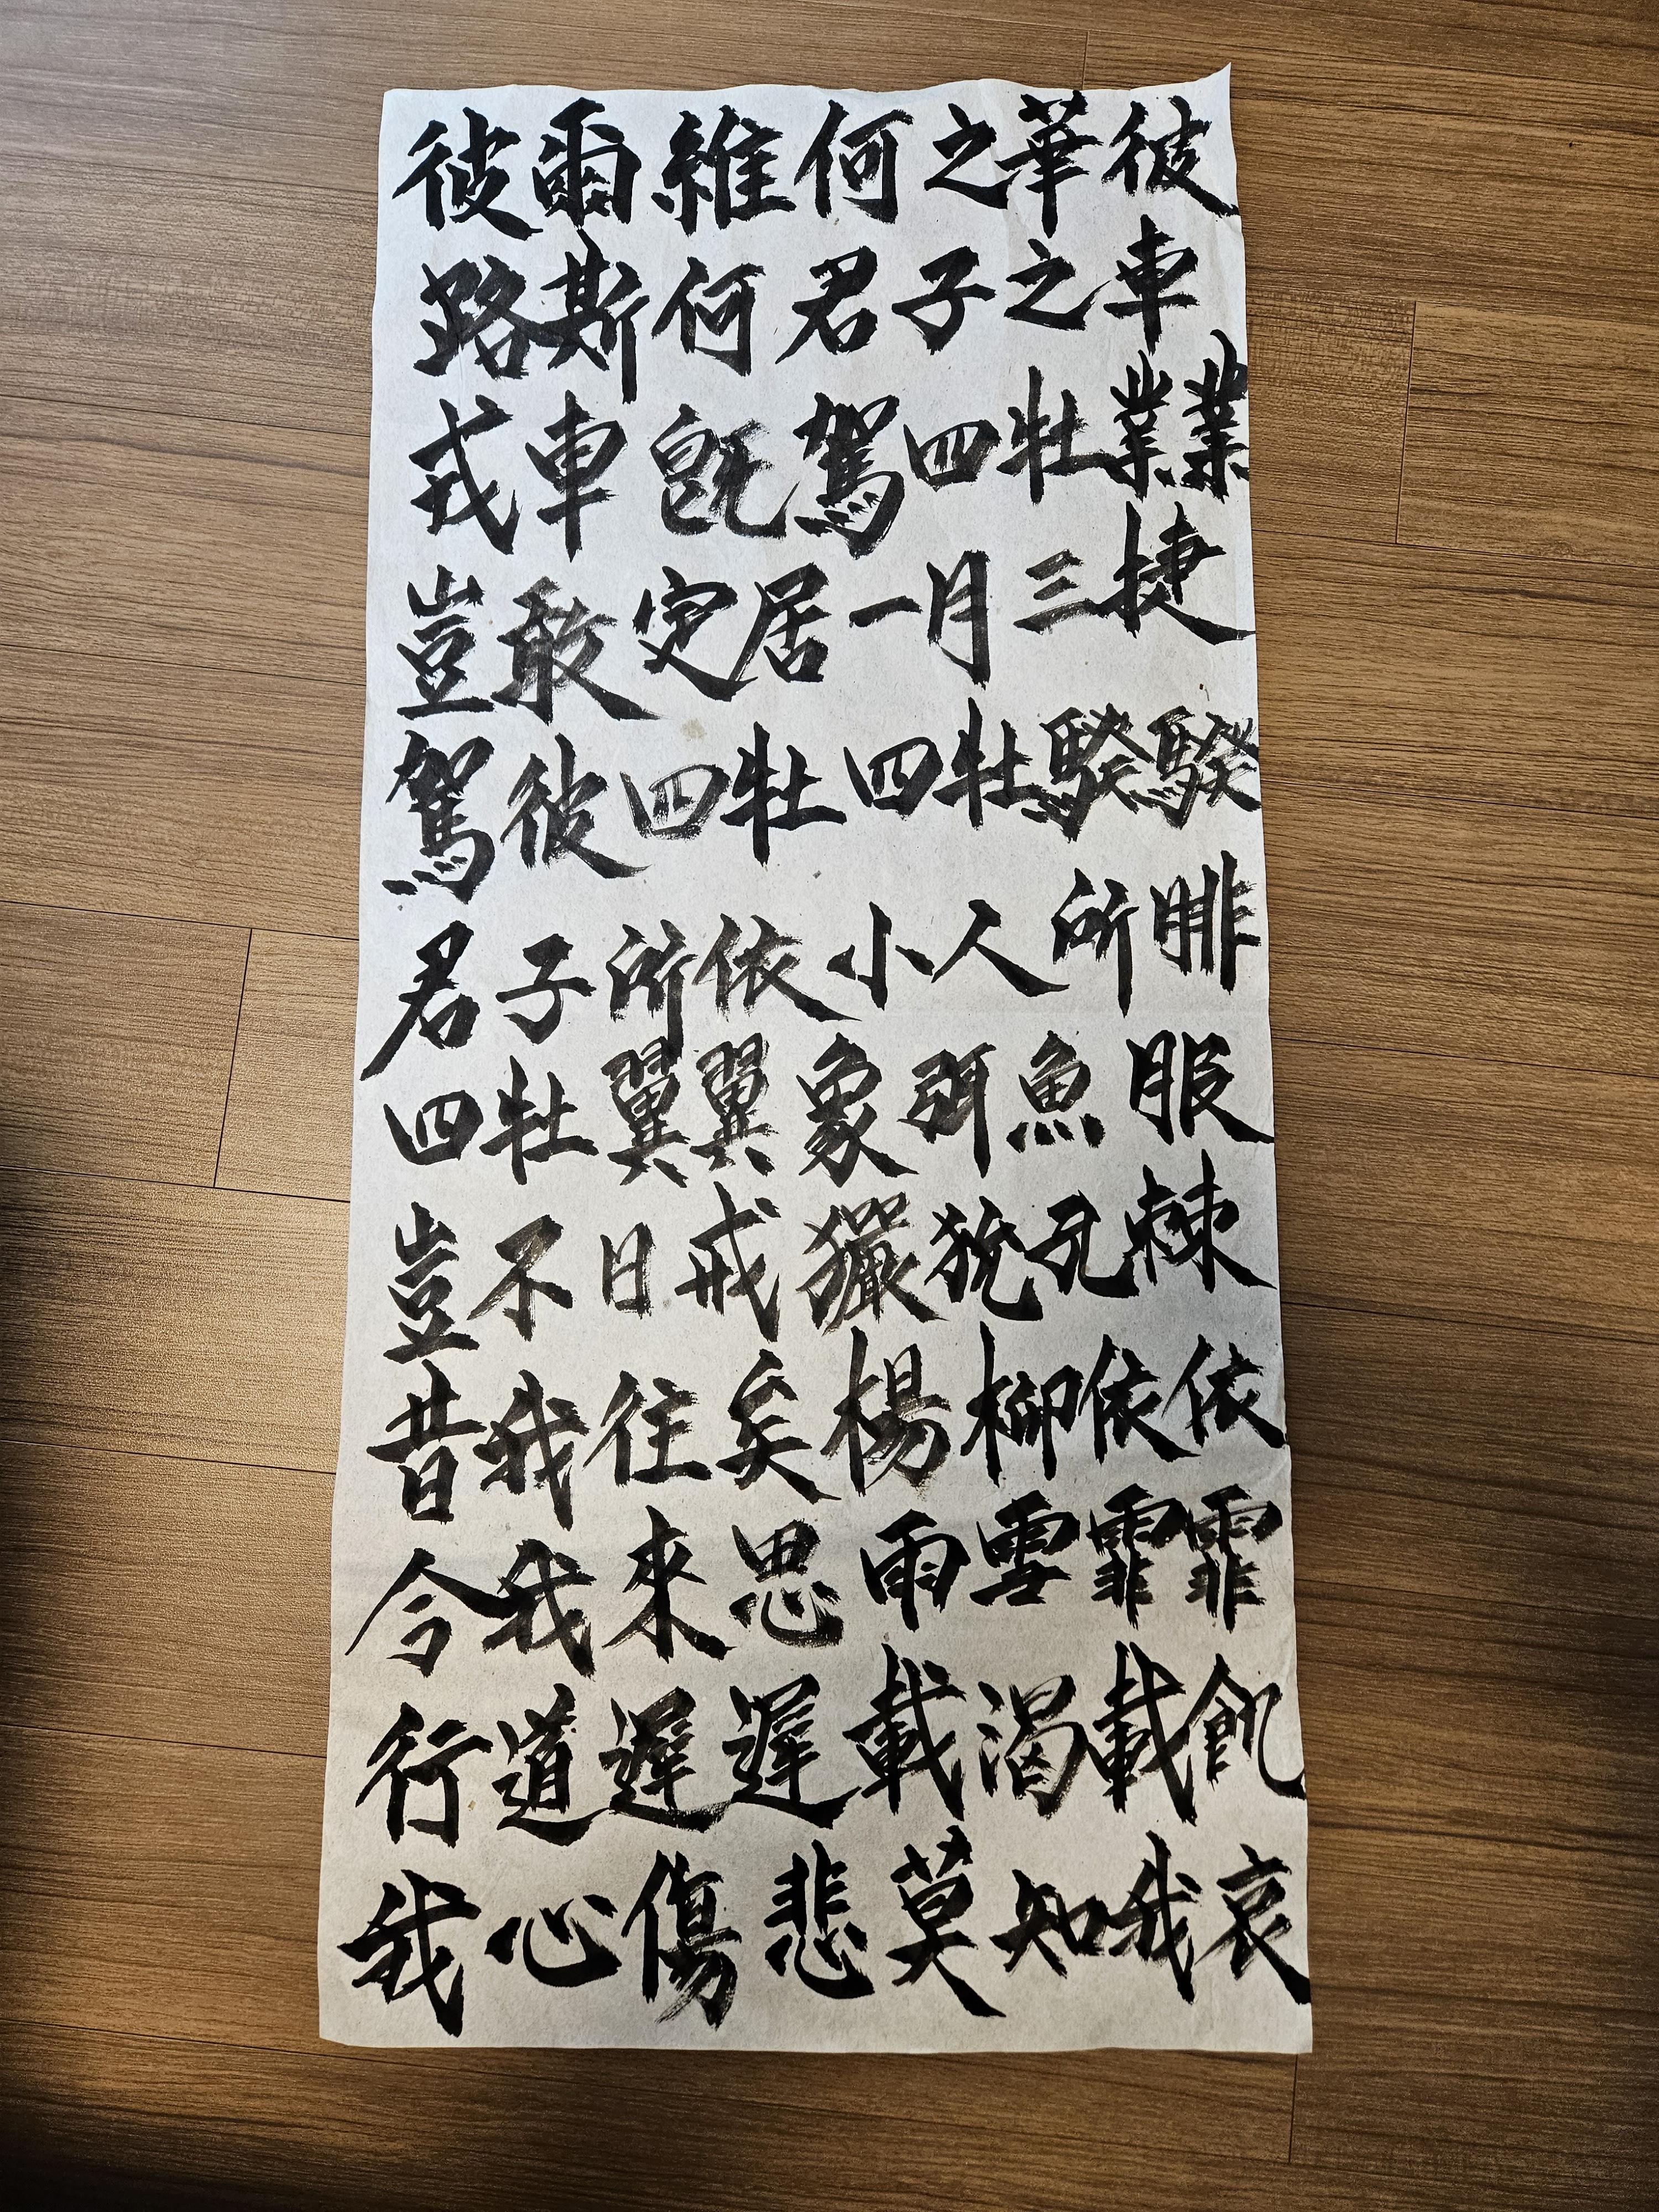 彼爾維何之華彼
路斯何君子之車
戎車既駕四牡業業
豈敢定居一月三捷
駕彼四牡四牡騤騤
君子所依小人所腓
四牡翼翼象弭魚服
豈不日戒玁狁孔棘
昔我往矣楊柳依依
今我來思雨雪霏霏
行道遲遲載渴載飢
我心傷悲莫知我哀